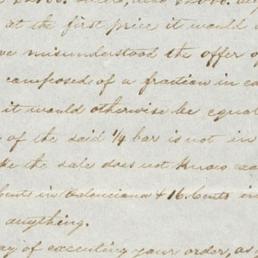 at the first price it would
misunderstood the offer of
composed of a fraction in
it would otherwise be equa
of the said 1/4 bar is not in
the sale does not know
cents in & 16. Cents in
anything.
ay of executing your order, as